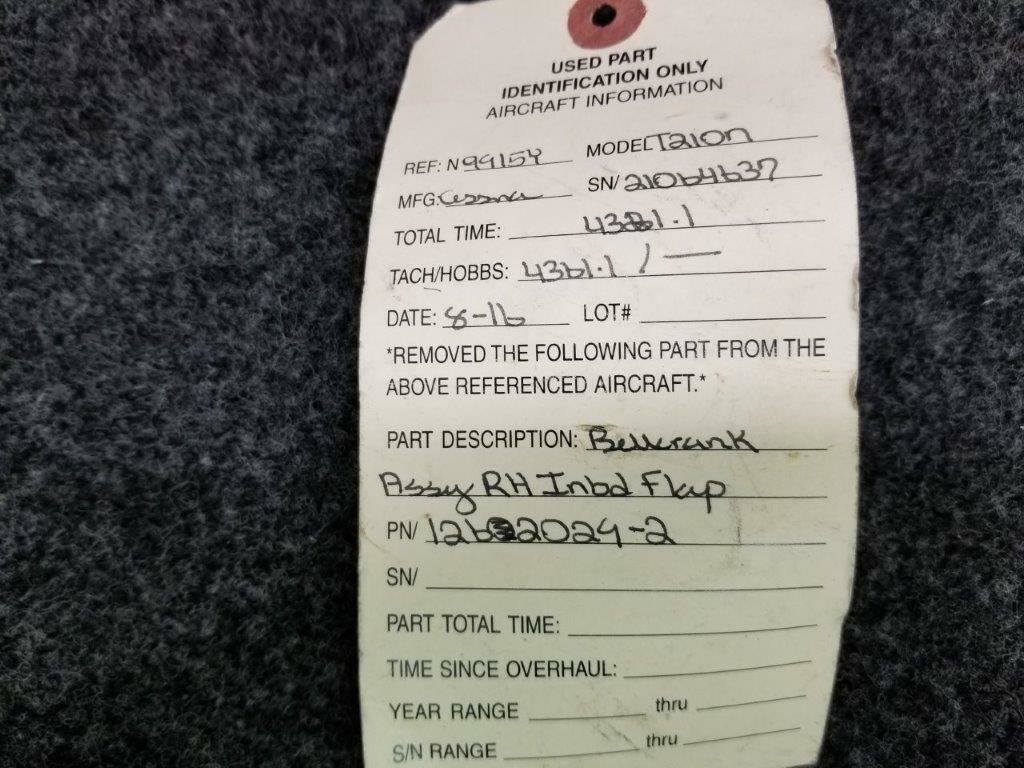 USED PART
IDENTIFICATION ONLY
AIRCRAFT INFORMATION
REF: N 9915Y MODEL T210N
MFG: Cessna SN/ 21064637
TOTAL TIME: 4361.1
TACH/HOBBS: 4361.1 / —
DATE: 8-16 LOT#
*REMOVED THE FOLLOWING PART FROM THE
ABOVE REFERENCED AIRCRAFT.*
PART DESCRIPTION: Bellcrank
Assy RH Inbd Flap
PN/ 1262024-2
SN/
PART TOTAL TIME:
TIME SINCE OVERHAUL:
YEAR RANGE thru
S/N RANGE thru